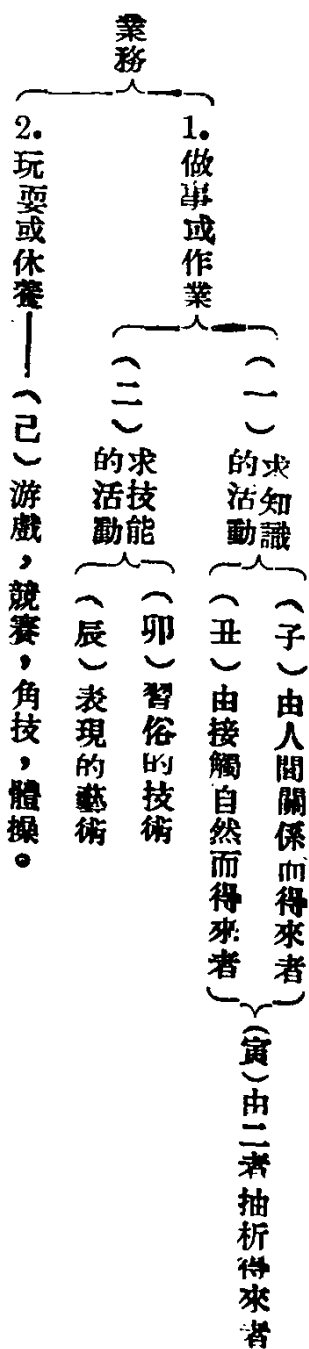 業務
1.做事或作業
(一)求知識
的活動
(子)由人間關係而得來者
(丑)由接觸自然而得來者
(寅)由二者抽析得來者
(二)求技能
的活動
(卯)習俗的技術
(辰)表現的藝術
2.玩耍或休養——(己)游戲,競賽,角技,體操。